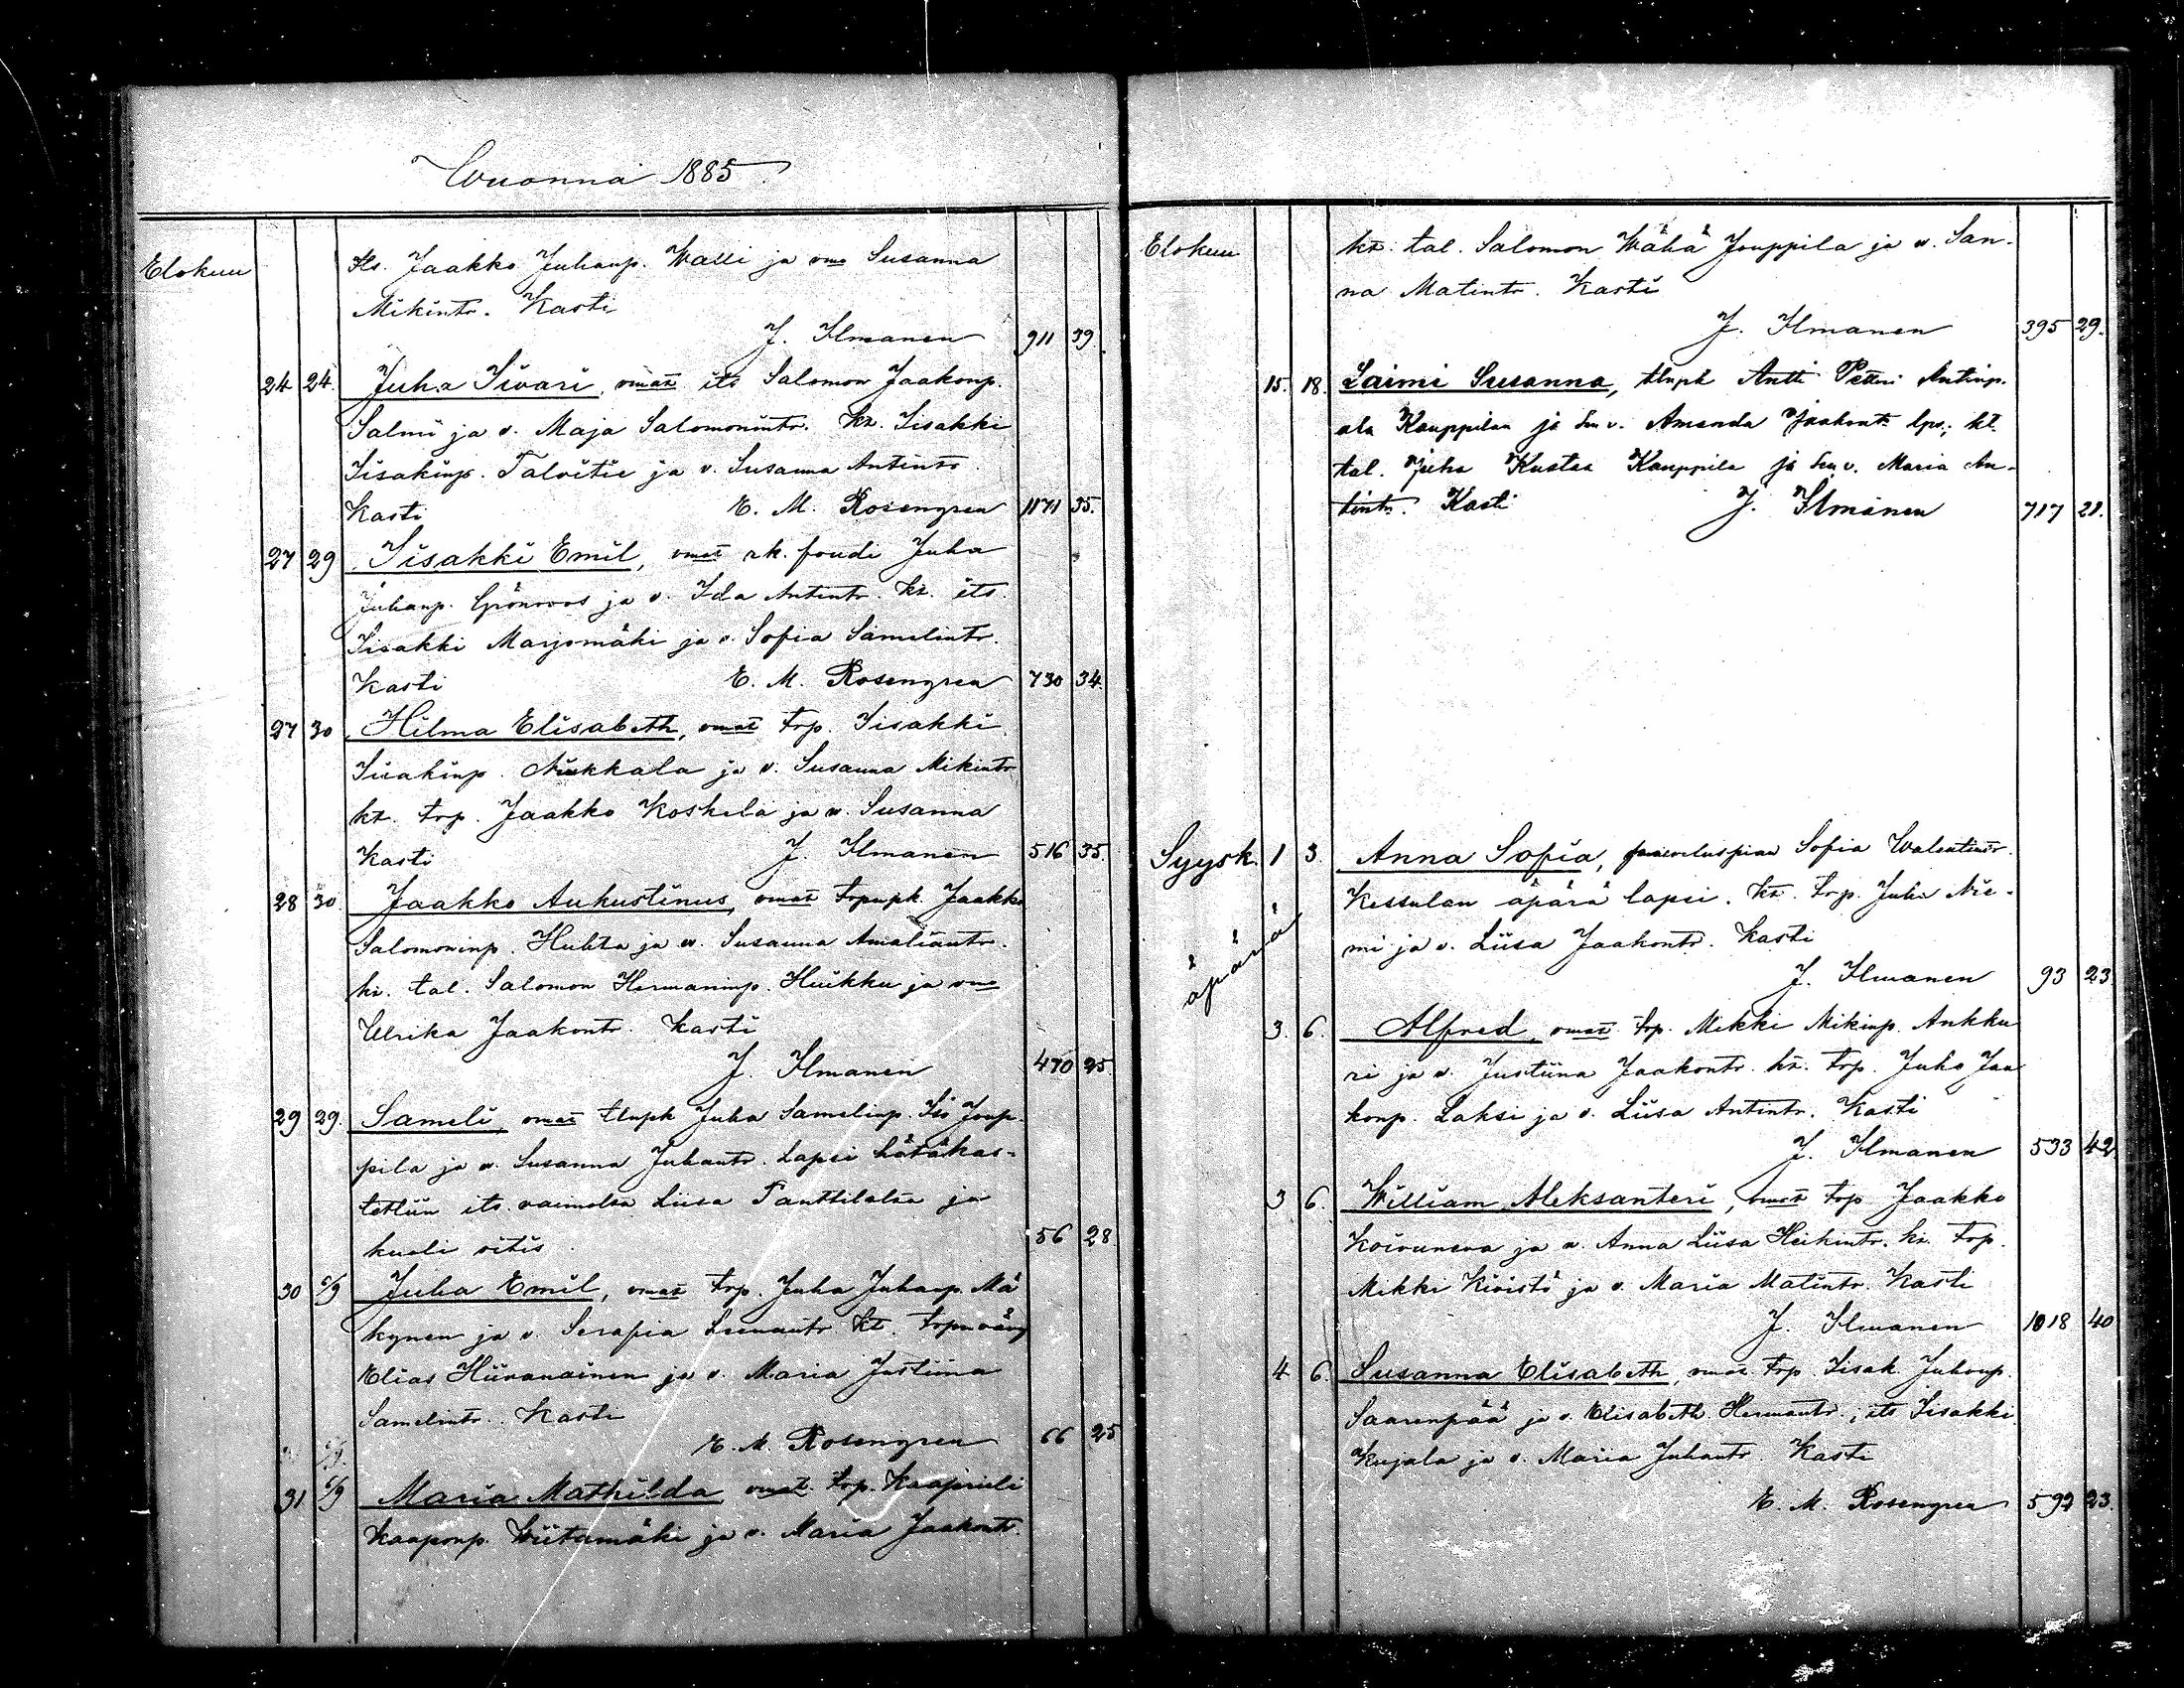 Wuonna 1885.
Elokuu Its. Jaakko Juhanp. Walli ja vmo Susanna
Mikintr. Kasti
J. Ilmanen 911 39.
24 24. Juha Iivari, omat its Salomon Jaakonp.
Salmi ja v. Maja Salomonintr. Kt. Iisakki
Iisakinp. Talvitie ja v. Susanna Antintr.
Kasti E. M. Rosengren 1171 35.
27 29 Iisakki Emil, omat rk. Juha
Juhanp. Grönroos ja v. Ida Antintr. Kt. its.
Iisakki Marjomäki ja v. Sofia Samelintr.
Kasti E. M. Rosengren 730 34.
27 30 Hilma Elisabeth, omat trp. Iisakki
Iisakinp. Niukkala ja v. Susanna Mikintr
kt. trp. Jaakko Koskela ja v. Susanna
Kasti J. Ilmanen 516 35.
28 30. Jaakko Aukustinus, omat trpnpk. Jaakko
Salomoninp. Huhta ja v. Susanna Amaliantr.
kt. tal. Salomon Hermaninp. Huikku ja vmo
Ulrika Jaakontr. Kasti
J. Ilmanen 470 25.
29 29. Sameli, omat tlnpk Juha Samelinp. Iso Joup-
pila ja v. Susanna Juhantr. Lapsi hätäkas-
tettiin its. vaimolta Liisa Panttilalta ja
kuoli vitis. 56 28.
30 6/9 Juha Emil, omat trp. Juha Juhanp. Mä
kynen ja v. Serafia kt. trpnväv
Elias Hiivanainen ja v. Maria Justiina
Samelintr. Kasti
E. M. Rosengren 66 25
31 6/9 Maria Mathilda omat. trp. Kaaprieli
Kaaponp. Wiitamäki ja v. Maria Jaakontr.
Elokuu kt. tal. Salomon Wähä Jouppila ja v. San-
na Matintr. Kasti
J. Ilmanen 395 29.
15. 18. Laimi Susanna, tlnpk Antti Petteri Antinp.
ala Kauppilan ja sen v. Amanda Jaakontr. lps; kt.
tal. Juha Kustaa Kauppila ja sen v. Maria An-
tintr. Kasti J. Ilmanen 717 21.
Syysk. 1 3. Anna Sofia, Sofia Walentintr.
Kessulan äpärä lapsi. Kt. trp. Juha Nie-
mi ja v. Liisa Jaakontr. Kasti
äpärä
J. Ilmanen 93 23
3. 6. Alfred, omat trp. Mikki Mikinp. Ankku
ri ja v. Justiina Jaakontr. kt. trp. Juho Jaa
konp. Laksi ja v. Liisa Antintr. Kasti
J. Ilmanen 533 42.
3 6. William Aleksanteri, omat trp Jaakko
Koivuneva ja v. Anna Liisa Heikintr. kt. trp.
Mikki Kivistö ja v. Maria Matintr. Kasti
J. Ilmanen 1018 40
4 6. Susanna Elisabeth, omat. trp. Iisak Juhonp.
Saarenpää ja v. Elisabeth Hermantr.; its Iisakki
Kujala ja v. Maria Juhantr. Kasti
E. M. Rosengren 592 23.